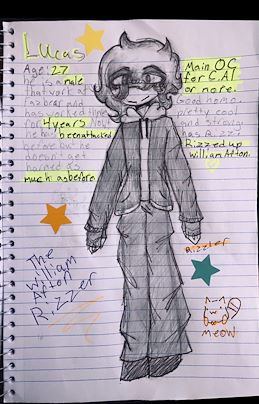 Lucas
Age: 27
he is a male
that work at
fazbear and
has worked there
for 4 years now
he has been attacked
before but he
doesn't get
harmed as
much as before
Main OC
for C.AI
or more.
Good homo,
pretty cool
and strong
has Rizz:
Rizzed up
William Afton.
The
William
Afton
Rizzer
Rizzler
meow